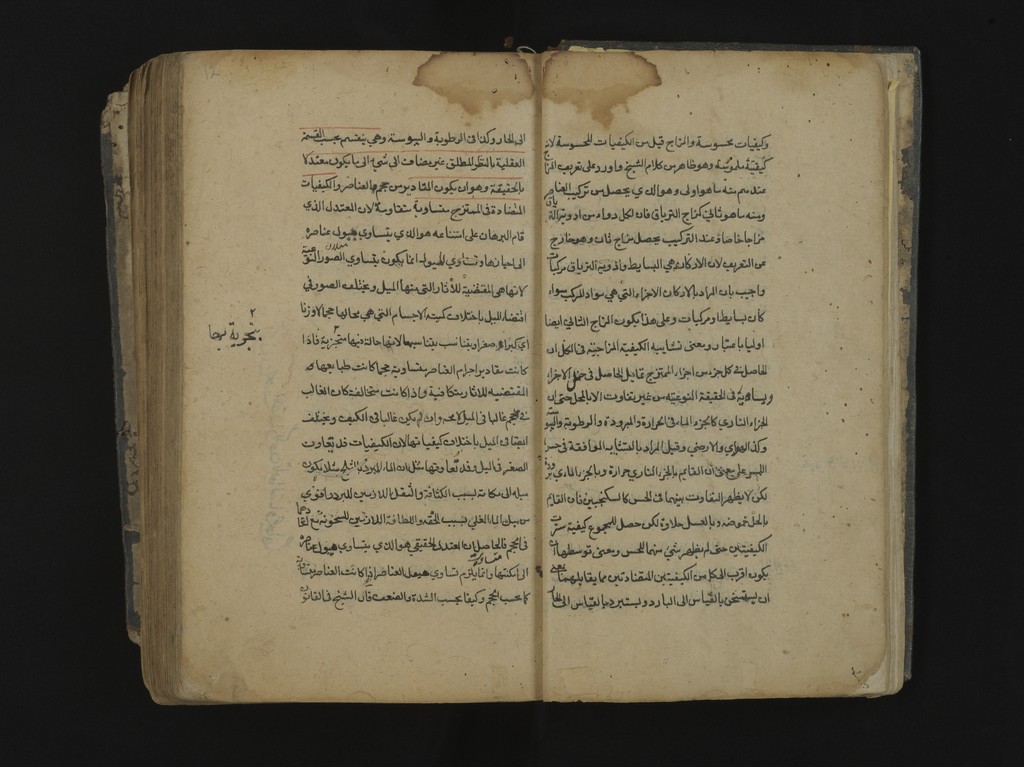 وكيفيات محسوسة والمزاج قيل من الكيفيات المحسوسة لانه
كيفية ملموسة وهو ظاهر من كلام الشيخ واورد على تعريف المزاج
منه ما هو اولى وهو الذي يحصل من تركيب العناصر
ومنه ما هو ثاني كمزاج الترياق فان لكل دواء من ادوية الترياق
مزاجا خاصا وعند التركيب يحصل مزاج ثان وهو خارج
عن التعريف لان الاركان هي البسايط وادوية الترياق مركبات
واجيب بان المراد بالاركان الاجزاء التي هي مواد المركب سواء
كان بسايط او مركبات وعلى هذا يكون المزاج الثاني ايضا
اوليا باعتبار ومعنى تشابه الكيفية المزاجية في الكل ان
الحاصل في كل جزء من اجزاء الممتزج تماثل الحاصل في الاجزاء
ويساويه في الحقيقة النوعية من غير تفاوت الا بالمحل حتى ان
الجزء الناري كالجزء المائي في الحرارة والبرودة والرطوبة واليبوسة
وكذا الهوائي والارضي وقيل المراد بالتشابه الموافقة في حس
اللمس على معنى ان القايم بالجزء الناري حرارة وبالجزء المائي برودة
لكن لا يظهر التفاوت بينهما في الحس كالسكنجبين فان القايم
بالخل حموضة وبالعسل حلاوة لكن حصل للمجموع كيفية
الكيفيتين حتى لم يظهر شئ منهما للحس ومعنى توسطها ان
يكون اقرب الى كل من الكيفيتين المتضادتين مما يقابلها بمعنى
ان يستسخن بالقياس الى البارد ويستبرد بالقياس الى الحار
١٢
الى الحار وكذا في الرطوبة واليبوسة وهي ينقسم بحسب القسمة
العقلية بالنظر المطلق غير مضاف الى شئ الى ما يكون معتدلا
بالحقيقة وهو ان يكون المقادير من حجم العناصر والكيفيات
المتضادة في الممتزج متساوية متقاومة لان المعتدل الذي
قام البرهان على امتناعه هو الذي يتساوى ميول عناصره
الى احيازها وتساوي الميول انما يكون بتساوي الصور النوعية
لانها هي المقتضية للاثار التي منها الميل ويختلف الصور في
اقتضاء الميل باختلاف كمية الاجسام التي هي محالها حجما لا وزنا
اي كبرا وصغرا لانها حالة فيها متجزية فاذا
كانت مقادير اجرام العناصر متساوية حجما كانت طبايعها
المقتضية للاثار متكافية واذا كانت متخالفة كان الغالب
في الحجم غالبا في الميل وان لم يكن غالبا في الكيف ويختلف
ايضا في الميل باختلاف كيفياتها لان الكيفيات قد تعاون
الصور في الميل وقد تعاوقها مثلا ان الماء المبرد بالثلج مثلا يكون
ميله الى مكانه بسبب الكثافة والثقل اللازمين للبرد اقوى
من ميل الماء المغلي بسبب الخفة واللطافة اللازمين للسخونة مع اتحادهما
في الحجم فالحاصل ان المعتدل الحقيقي هو الذي يتساوى ميول عناصره
الى امكنتها وانما يلزم تساوي ميول العناصر اذا كانت العناصر متساوية
كما بحسب الحجم وكيفا بحسب الشدة والضعف قال الشيخ في القانون
٢
بتجزية محالها